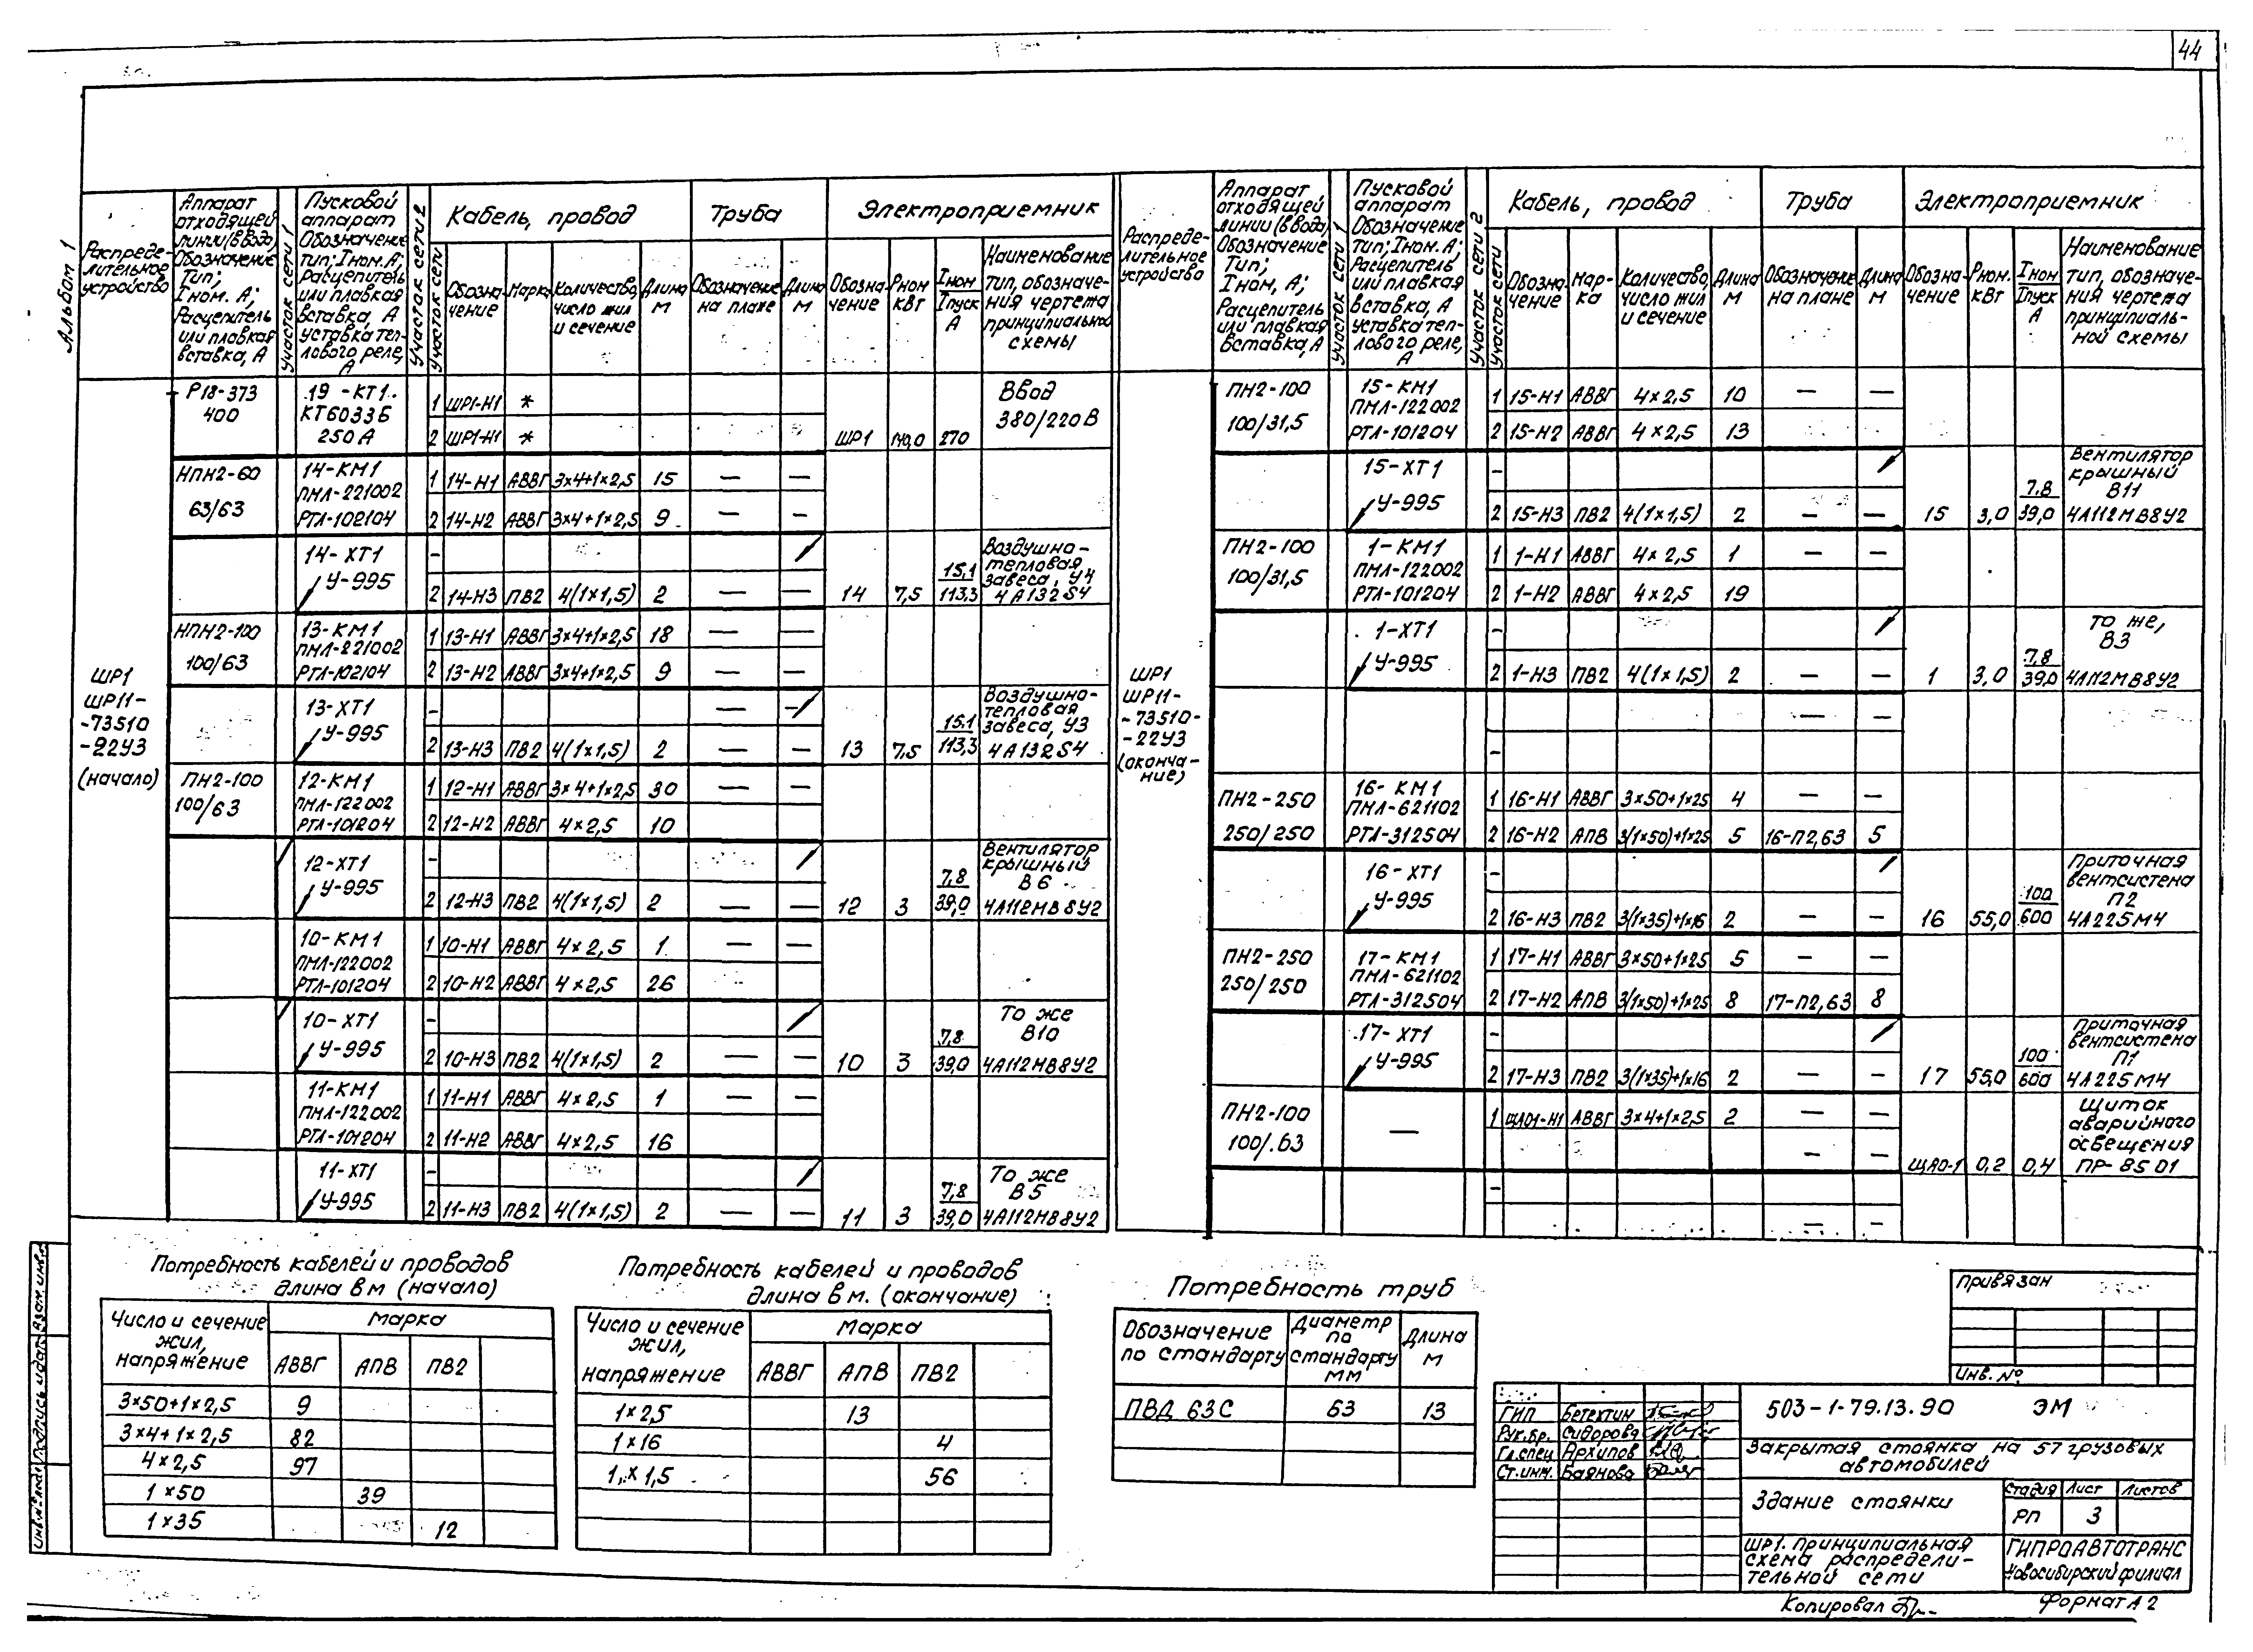 44
Альбом 1
Распреде-
лительное
устройство
Аппарат
отходящей
линии (ввода)
Обозначение
Тип;
Iном. А;
Расцепитель
или плавкая
вставка, А
Участок сети 1
Пусковой
аппарат
Обозначение
тип; Iном. А;
Расцепитель
или плавкая
вставка, А
уставка теп-
лового реле,
А
Участок сети 2
Кабель, провод
Труба
Электроприемник
Участок сети
Обозна-
чение
Марка
Количество,
число жил
и сечение
Длина
м
Обозначение
на плане
Длина
м
Обозна-
чение
Рном
кВт
Iном
Iпуск
А
Наименование
тип, обозначе-
ния чертежа
принципиальной
схемы
ШР1
ШР11-
-73510
-22У3
(начало)
Р18-373
400
19-КТ1
КТ6033Б
250А
1 ШР1-Н1 *
2 ШР1-Н1 * ШР1 140,0 270
Ввод
380/220В
НПН2-60
63/63
14-КМ1
ПМЛ-221002
РТЛ-102104
1 14-Н1 АВВГ 3×4+1×2,5 15 — —
2 14-Н2 АВВГ 3×4+1×2,5 9 — —
14-ХТ1
У-995
-
2 14-Н3 ПВ2 4(1×1,5) 2 — — 14 7,5 15,1
113,3
Воздушно-
тепловая
завеса, У4
4А132S4
НПН2-100
100/63
13-КМ1
ПМЛ-221002
РТЛ-102104
1 13-Н1 АВВГ 3×4+1×2,5 18 — —
2 13-Н2 АВВГ 3×4+1×2,5 9 — —
13-ХТ1
У-995
- — —
2 13-Н3 ПВ2 4(1×1,5) 2 — — 13 7,5 15.1
113,3
Воздушно-
тепловая
завеса, У3
4А132S4
ПН2-100
100/63
12-КМ1
ПМЛ-122002
РТЛ-101204
1 12-Н1 АВВГ 3×4+1×2,5 30 — —
2 12-Н2 АВВГ 4×2,5 10
12-ХТ1
У-995
-
2 12-Н3 ПВ2 4(1×1,5) 2 — — 12 3 7,8
39,0
Вентилятор
крышный
В6
4А112МВ8У2
10-КМ1
ПМЛ-122002
РТЛ-101204
1 10-Н1 АВВГ 4×2,5 1 — —
2 10-Н2 АВВГ 4×2,5 26
10-ХТ1
У-995
-
2 10-Н3 ПВ2 4(1×1,5) 2 — — 10 3 7,8
39,0
То же
В10
4А112МВ8У2
11-КМ1
ПМЛ-122002
РТЛ-101204
1 11-Н1 АВВГ 4×2,5 1 — —
2 11-Н2 АВВГ 4×2,5 16
11-ХТ1
У-995
-
2 11-Н3 ПВ2 4(1×1,5) 2 — — 11 3 7,8
39,0
То же
В5
4А112МВ8У2
Распреде-
лительное
устройство
Аппарат
отходящей
линии (ввода)
Обозначение
Тип;
Iном, А;
Расцепитель
или плавкая
вставка, А
Участок сети 1
Пусковой
аппарат
Обозначение
тип; Iном. А;
Расцепитель
или плавкая
вставка, А
уставка теп-
лового реле,
А
Участок сети 2
Кабель, провод
Труба
Электроприемник
Участок сети
Обозна-
чение
Мар-
ка
Количество,
число жил
и сечение
Длина
м
Обозначение
на плане
Длина
м
Обозна-
чение
Рном.
кВт
Iном
Iпуск
А
Наименование
тип, обозначе-
ния чертежа
принципиаль-
ной схемы
ШР1
ШР11-
-73510-
-22У3
(оконча-
ние)
ПН2-100
100/31,5
15-КМ1
ПМЛ-122002
РТЛ-101204
1 15-Н1 АВВГ 4×2,5 10 — —
2 15-Н2 АВВГ 4×2,5 13
15-ХТ1
У-995
-
2 15-Н3 ПВ2 4(1×1,5) 2 — — 15 3,0 7.8
39,0
Вентилятор
крышный
В11
4А112МВ8У2
ПН2-100
100/31,5
1-КМ1
ПМЛ-122002
РТЛ-101204
1 1-Н1 АВВГ 4×2,5 1 — —
2 1-Н2 АВВГ 4×2,5 19
1-ХТ1
У-995
-
2 1-Н3 ПВ2 4(1×1,5) 2 — — 1 3,0 7,8
39,0
То же,
В3
4А112МВ8У2
— —
-
ПН2-250
250/250
16-КМ1
ПМЛ-621102
РТЛ-312504
1 16-Н1 АВВГ 3×50+1×25 4 — —
2 16-Н2 АПВ 3(1×50)+1×25 5 16-П2,63 5
16-ХТ1
У-995
-
2 16-Н3 ПВ2 3(1×35)+1×16 2 — — 16 55,0 100
600
Приточная
вентсистема
П2
4А225М4
ПН2-250
250/250
17-КМ1
ПМЛ-621102
РТЛ-312504
1 17-Н1 АВВГ 3×50+1×25 5 — —
2 17-Н2 АПВ 3(1×50)+1×25 8 17-П2,63 8
17-ХТ1
У-995
-
2 17-Н3 ПВ2 3(1×35)+1×16 2 — — 17 55,0 100
600
Приточная
вентсистема
П1
4А225М4
ПН2-100
100/.63
—
1 ЩАО1-Н1 АВВГ 3×4+1×2,5 2 — —
— — ЩАО-1 0,2 0,4
Щиток
аварийного
освещения
ПР-8501
-
— —
Потребность кабелей и проводов
длина в м (начало)
Число и сечение
жил,
напряжение
Марка
АВВГ АПВ ПВ2
3×50+1×2,5 9
3×4+1×2,5 82
4×2,5 97
1×50 39
1×35 12
Потребность кабелей и проводов
длина в м. (окончание)
Число и сечение
жил,
напряжение
Марка
АВВГ АПВ ПВ2
1×2,5 13
1×16 4
1×1,5 56
Потребность труб
Обозначение
по стандарту
Диаметр
по
стандарту
мм
Длина
м
ПВД 63С 63 13
Привязан
Инв. №
ГИП Бетехтин
Рук.бр. Сидорова
Гл.спец Архипов
Ст.инж. Баянова
503-1-79.13.90 ЭМ
Закрытая стоянка на 57 грузовых
автомобилей
Здание стоянки
Стадия Лист Листов
РП 3
ШР1. Принципиальная
схема распредели-
тельной сети
ГИПРОАВТОТРАНС
Новосибирский филиал
Копировал
Формат А2
Инв.№ подл. Подпись и дата Взам. инв.№